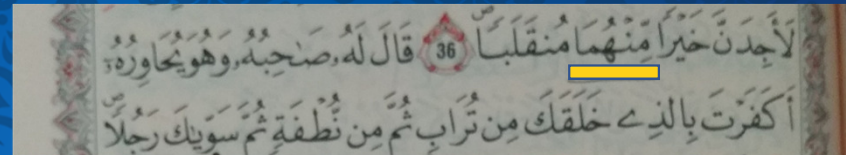 لَأَجِدَنَّ خَيْرًا مِّنْهُمَا مُنقَلَبًا 36 قَالَ لَهُۥ صَٰحِبُهُۥ وَهُوَ يُحَاوِرُهُۥٓ
أَكَفَرْتَ بِالذِے خَلَقَكَ مِن تُرَابٍ ثُمَّ مِن نُّطْفَةٍ ثُمَّ سَوّ۪يٰكَ رَجُلًا